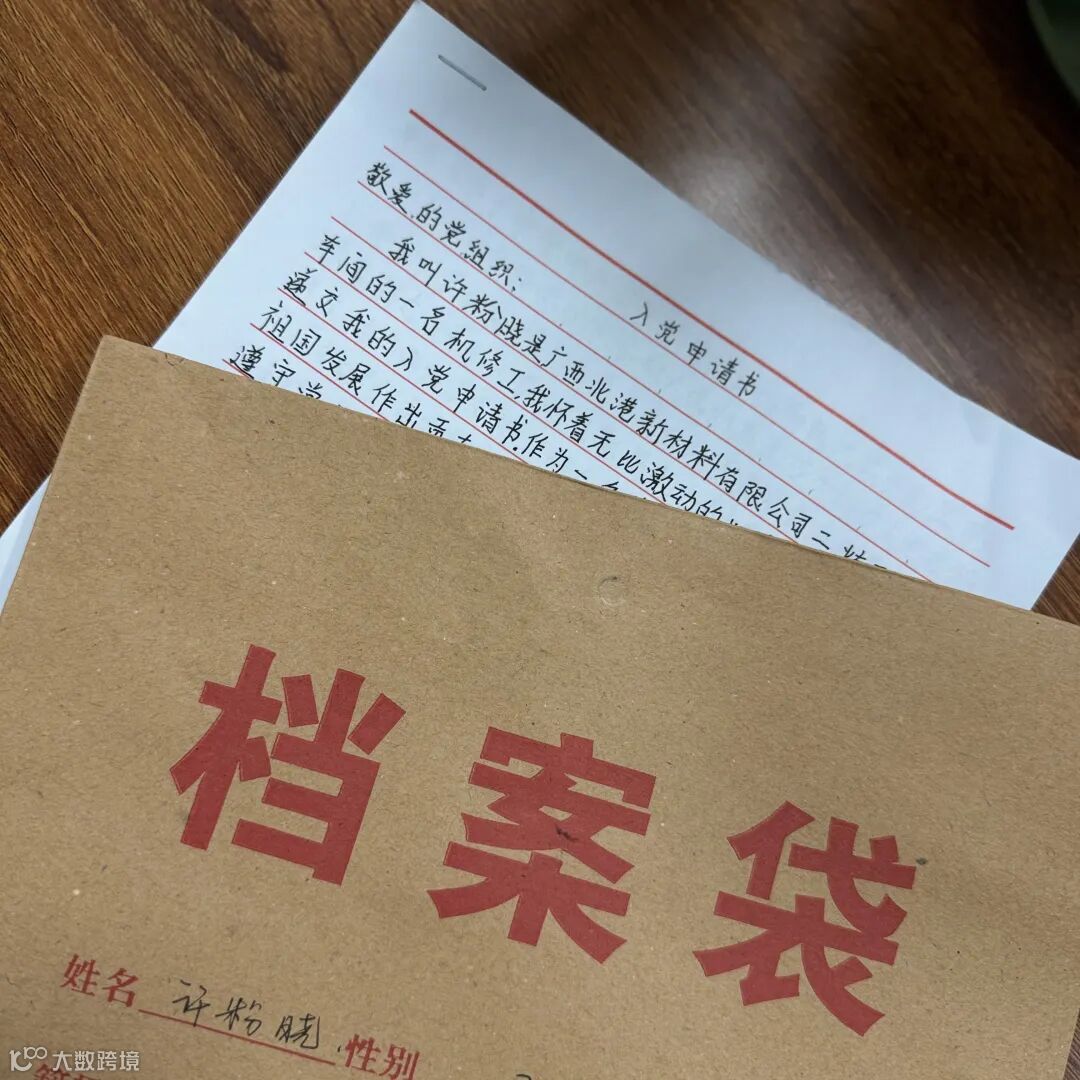 入党申请书
敬爱的党组织：
我叫许粉晓是广西北港新材料有限公司二炼
车间的一名机修工,我怀着无比激动的
递交我的入党申请书.作为一名
祖国发展作出贡
遵守党
档案袋
姓名 许粉晓 性别
大数跨境